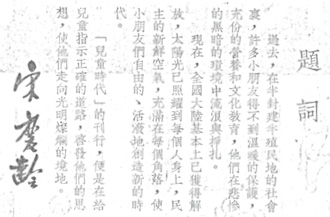 題詞
過去，在半封建半殖民地的社會
裏，許多小朋友得不到溫暖的保護，
充份的營養和文化教育，他們在悲慘
的黑暗的環境中流浪與掙扎。
現在，全國大陸基本上已獲得解
放，太陽光已照耀到每個人身上，民
主的新鮮空氣，充滿在每個角落，使
小朋友們自由的、活潑地創造新的時
代。
「兒童時代」的刊行，便是在給
兒童指示正確的道路，啓發他們的思
想，使他們走向光明燦爛的境地。
宋慶齡